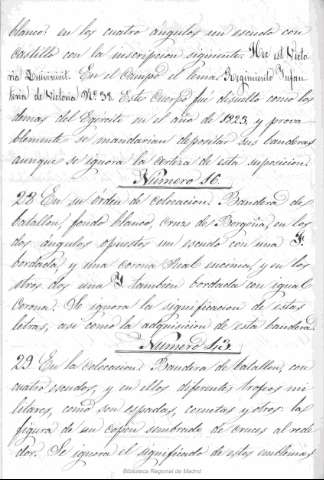 blanco: en los cuatro ángulos un escudo con
castillo con la inscripcion siguiente. Hec est Victo
ria Quivincit. En el campo el lema Regimiento Infan
teria de Victoria Nº 38. Este Cuerpo fué disuelto como los
demas del Egército en el año de 1823. y proba
blemente se mandarian depositar sus banderas
aunque se ignora la certeza de esta suposicion.
Número 16.
28 En su órden de colocacion. Bandera de
batallon, fondo blanco, cruz de Borgoña, en los
dos ángulos opuestos un escudo con una F.
bordada, y una corona Real encima, y en los
otros dos una Y tambien bordada con igual
corona. Se ignora la significacion de estas
letras, asi como la adquisicion de esta bandera.
Número 13.
29. En la colocacion. Bandera de batallon, con
cuatro escudos, y en ellos diferentes trofeos mi
litares, como son espadas, cornetas y otros la
figura de un copon sembrado de cruces al rede
dor. Se ignora el significado de estos emblemas
Biblioteca Regional de Madrid